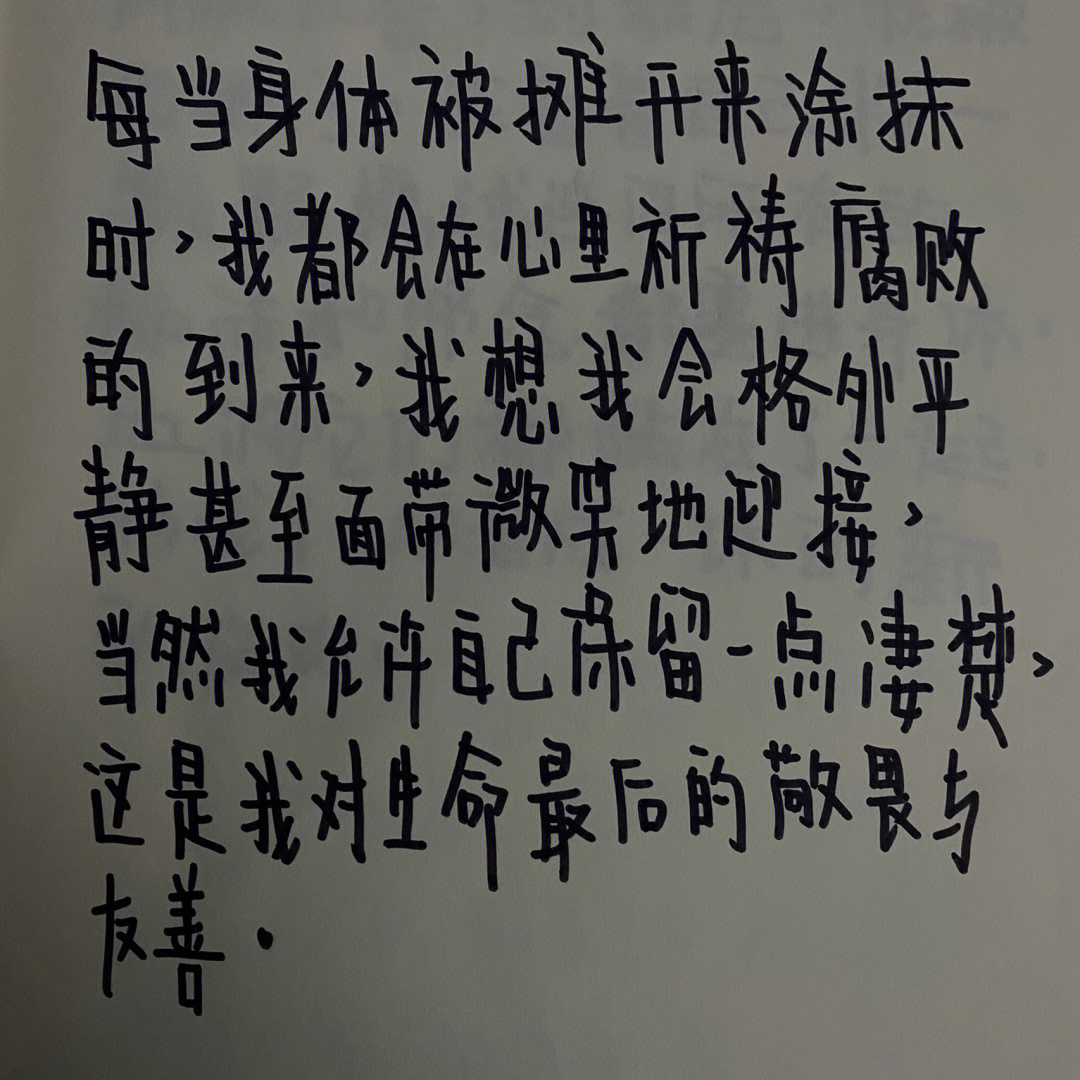 每当身体被摊开来涂抹
时,我都会在心里祈祷腐败
的到来,我想我会格外平
静甚至面带微笑地迎接,
当然我允许自己保留一点凄楚,
这是我对生命最后的敬畏与
友善.